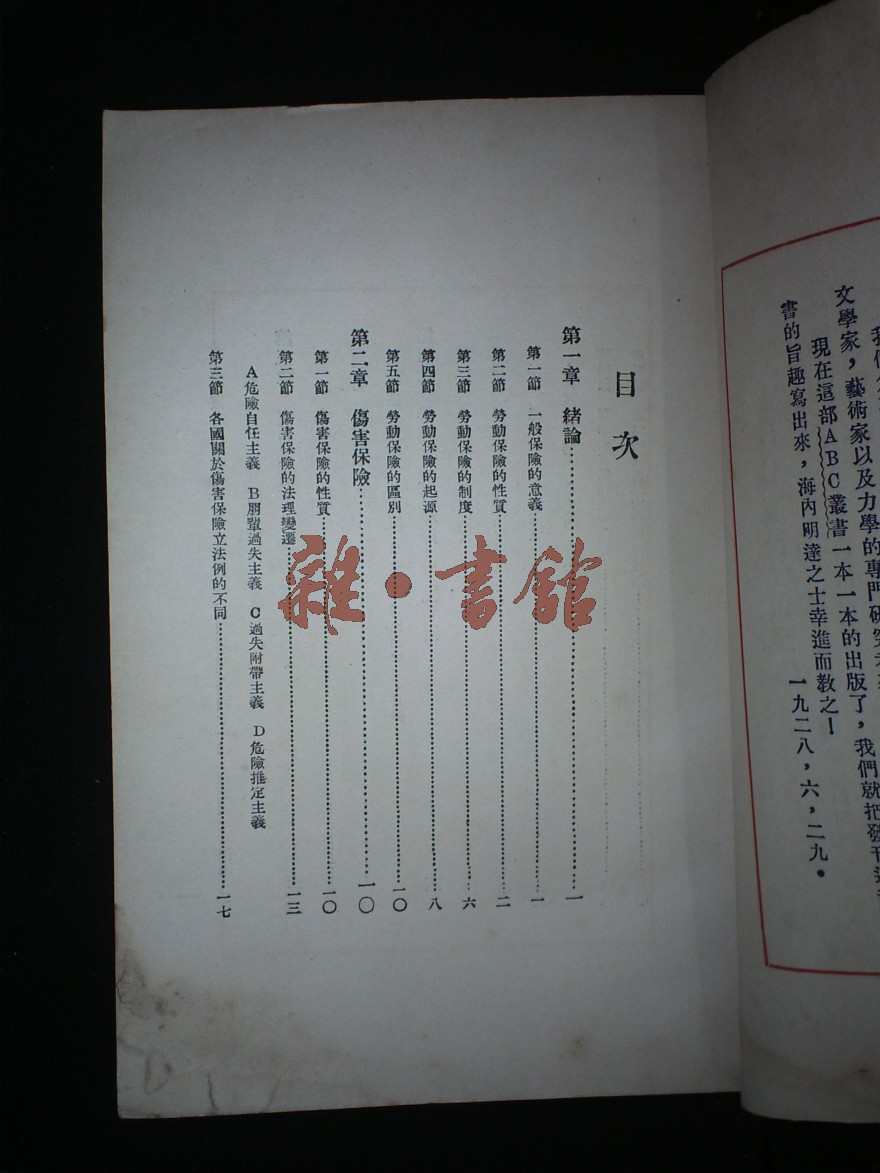 我們
文學家，藝術家以及力學的專門研究
現在這部ABC叢書一本一本的出版了，我們就把發刊
書的旨趣寫出來，海內明達之士幸進而教之！
一九二八，六，二九。
目次
第一章 緒論…………一
第一節 一般保險的意義…………一
第二節 勞動保險的性質…………二
第三節 勞動保險的制度…………六
第四節 勞動保險的起源…………八
第五節 勞動保險的區別…………一〇
第二章 傷害保險…………一〇
第一節 傷害保險的性質…………一〇
第二節 傷害保險的法理變遷…………一三
A危險自任主義 B朋輩過失主義 C過失附帶主義 D危險推定主義
第三節 各國關於傷害保險立法例的不同…………一七
雜·書館